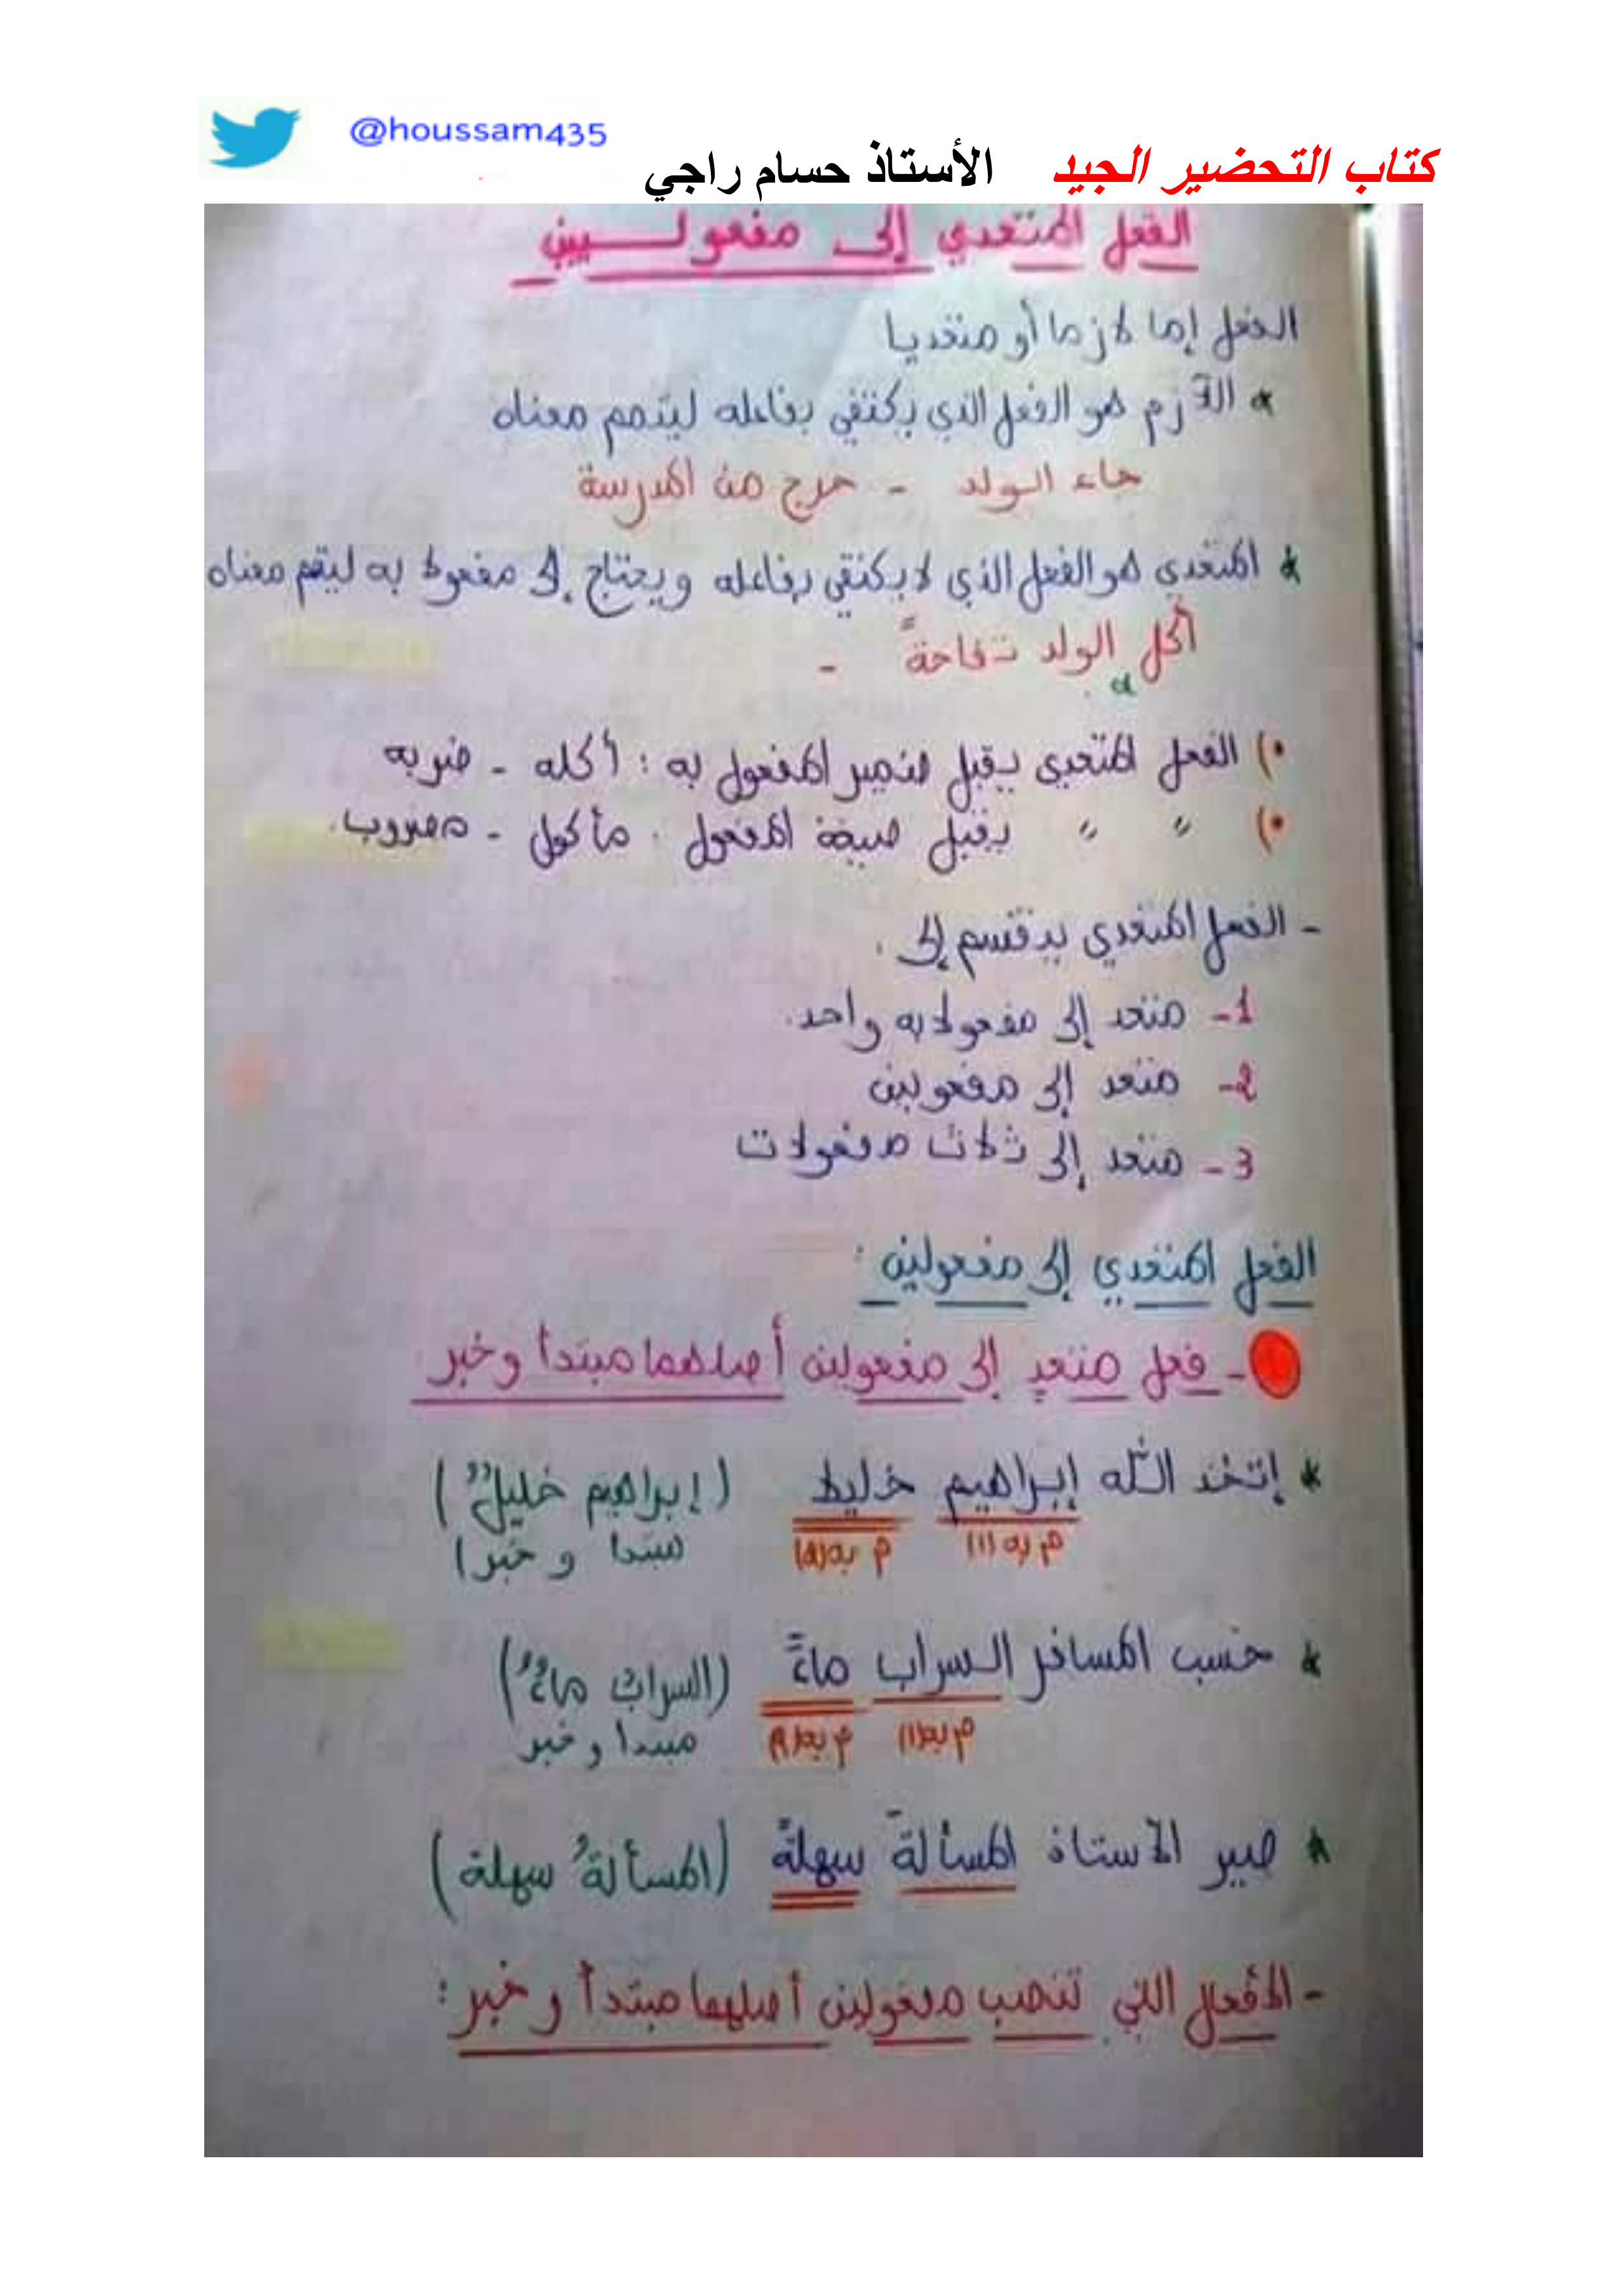 @houssam435
كتاب التحضير الجيد الأستاذ حسام راجي
الفعل المتعدي إلى مفعولــيين
الفعل إما لازما أو متعديا
* اللازم هو الفعل الذي يكتفي بفاعله ليتمم معناه
جاء الولد - خرج من المدرسة
* المتعدي هو الفعل الذي لا يكتفي بفاعله ويحتاج إلى مفعولا به ليتمم معناه
أكل الولد تفاحةً -
•) الفعل المتعدي يقبل ضمير المفعول به : أكله - ضربه
•) " " يقبل صيغة المفعول . مأكول - مضروب.
- الفعل المتعدي ينقسم إلى .
1- متعد إلى مفعولا به واحد.
2- متعد إلى مفعولين
3- متعد إلى ثلاث مفعولات
الفعل المتعدي إلى مفعولين :
- فعل متعدٍ إلى مفعولين أصلهما مبتدأ وخبر.
* إتخذ الله إبراهيم خليلا (إبراهيم خليلٌ)
م به (1) م به (2) مبتدا و خبر)
* حسب المسافر السراب ماءً (السرابُ ماءٌ)
م به(1) م به(2) مبتدا و خبر
* صير الأستاذ المسألةَ سهلةً (المسألةُ سهلة)
- الأفعال التي تنصب مفعولين أصلهما مبتدأ و خبر :